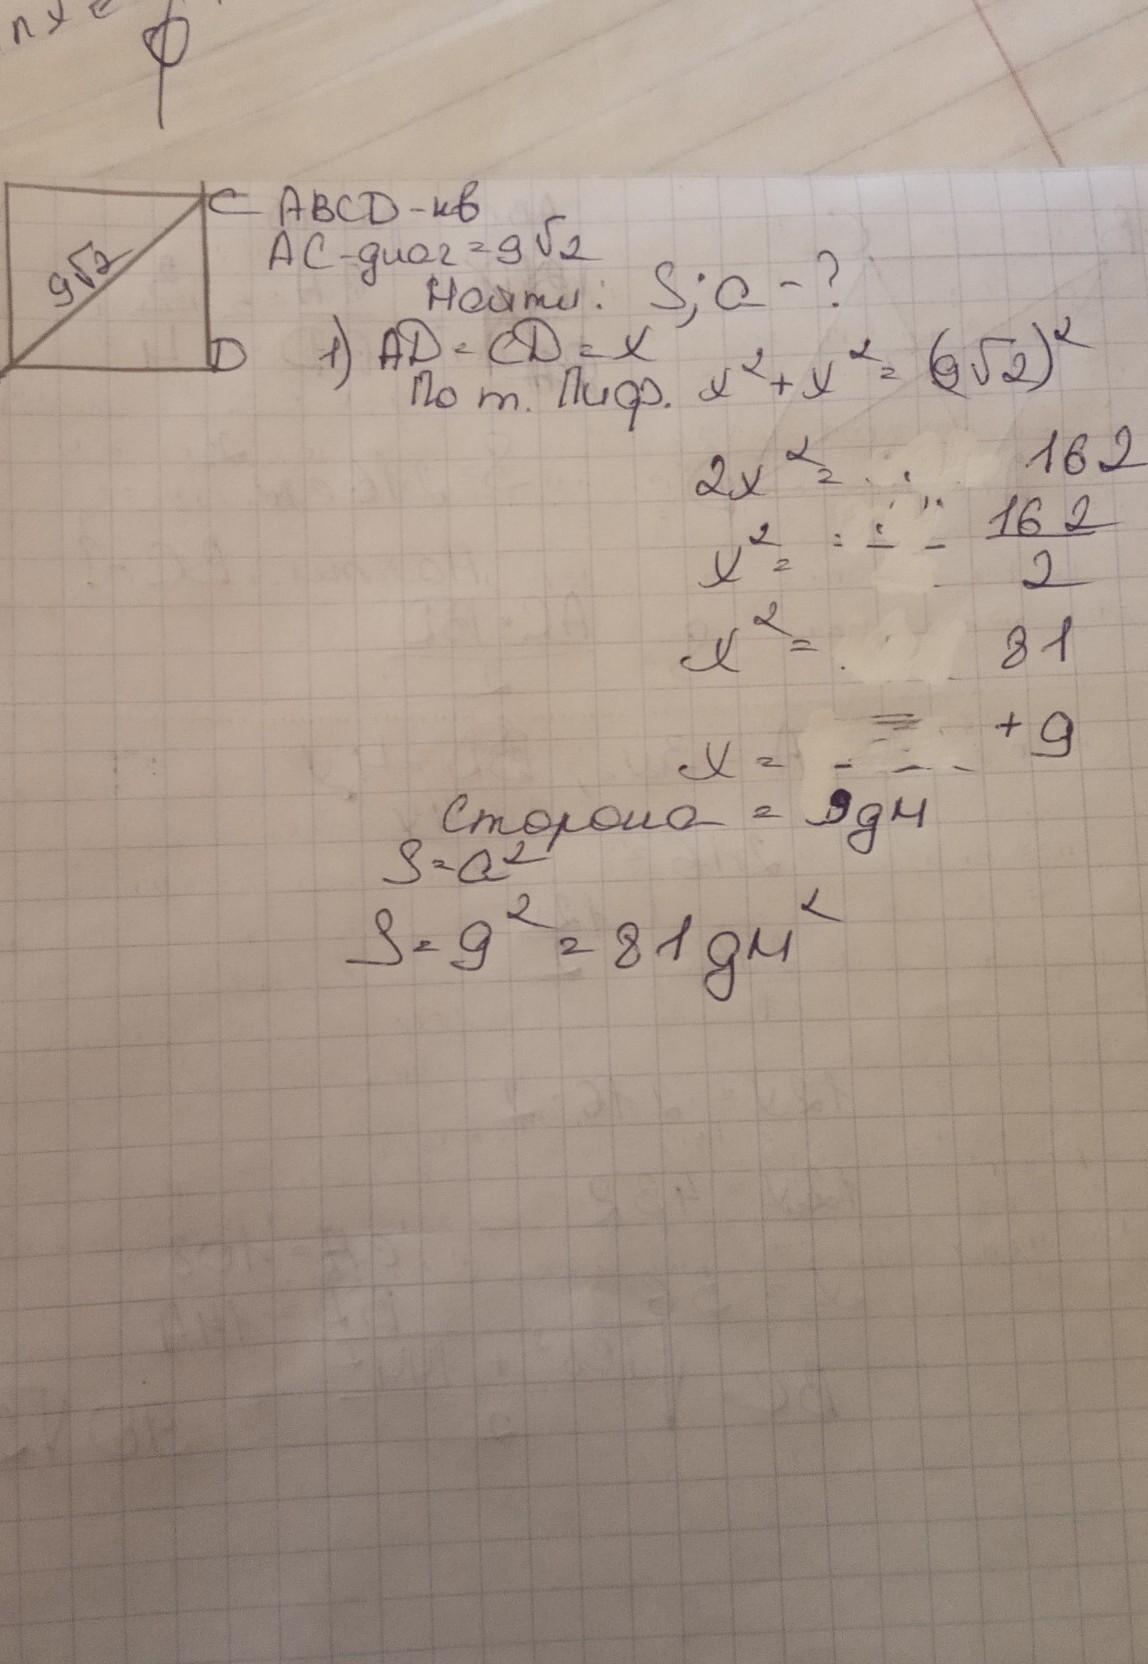 C ABCD-кв
AC-диаг=9√2
9√2
Найти: S; a - ?
D 1) AD=CD=x
По т. Пиф. x²+x²=(9√2)²
2x²= 162
x²= 162/2
x²= 81
x= +9
Сторона = 9дм
S=a²
S=9²=81дм²